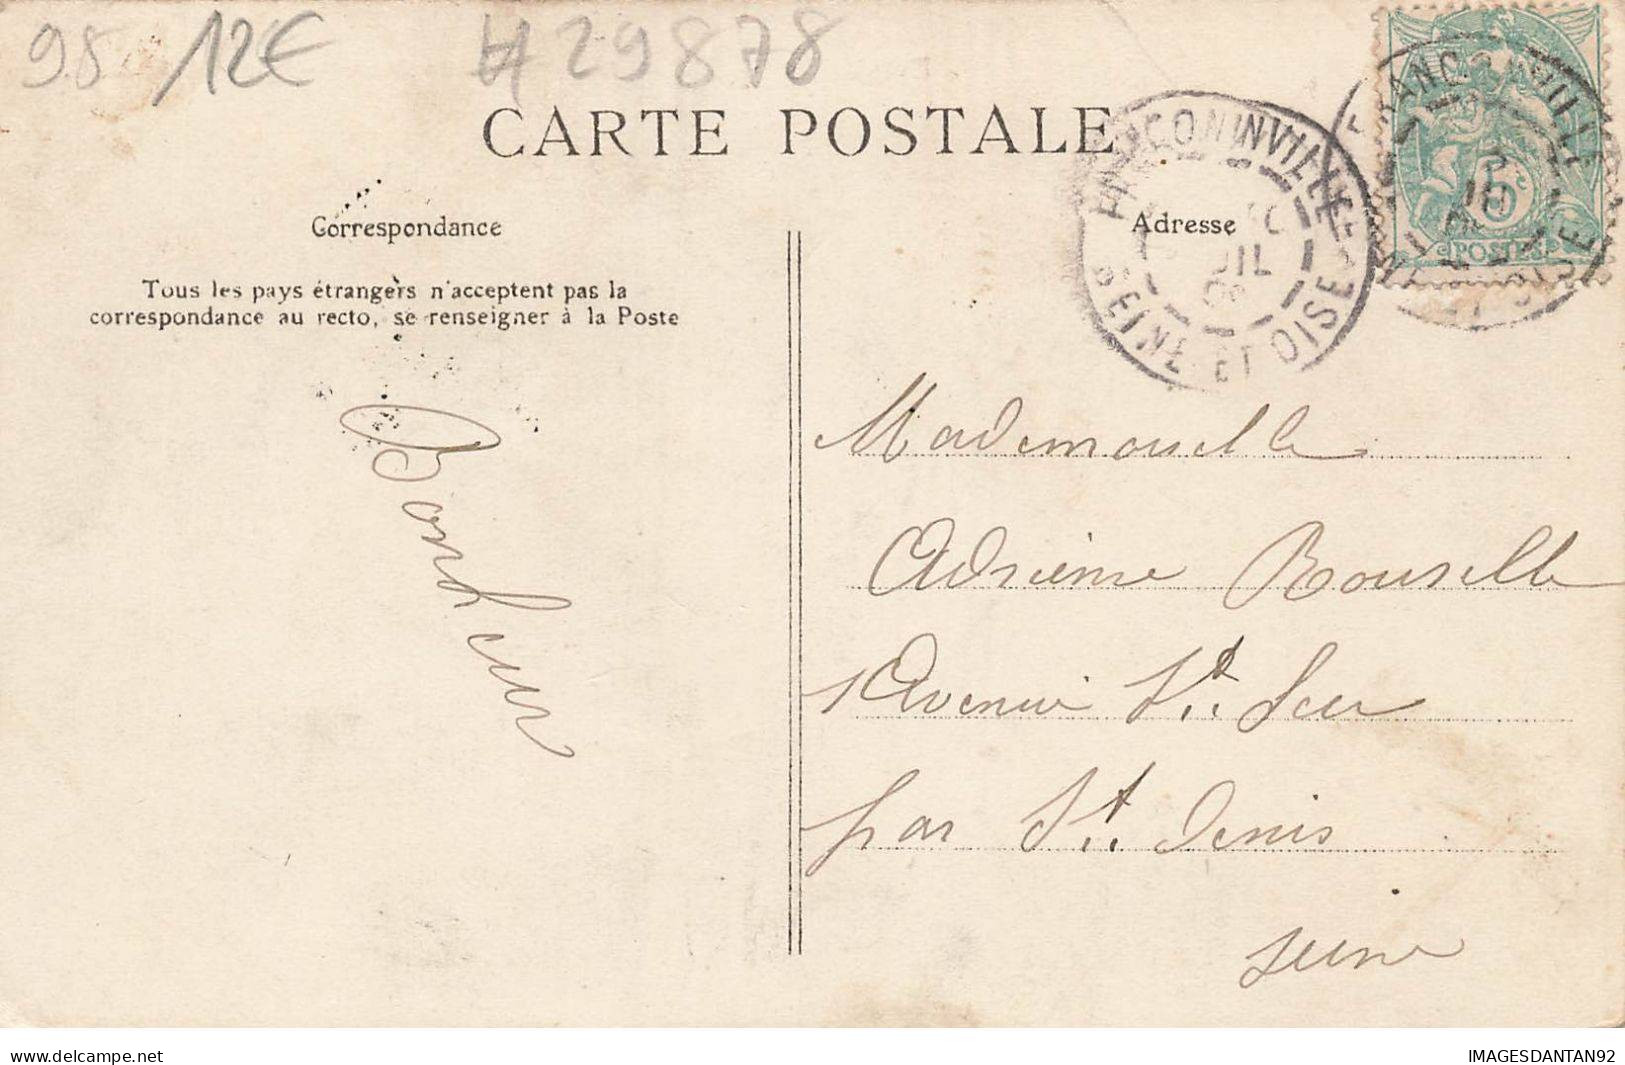 95 12€ #29878
CARTE POSTALE
Correspondance
Tous les pays étrangers n'acceptent pas la
correspondance au recto, se renseigner à la Poste
Bonheur
Adresse
FRANCONVILLE
SEINE-ET-OISE
5c
POSTES
Mademoiselle
Adrienne Rouselle
1 Avenue St.
par St. Denis
Seine
www.delcampe.net
IMAGESDANTAN92